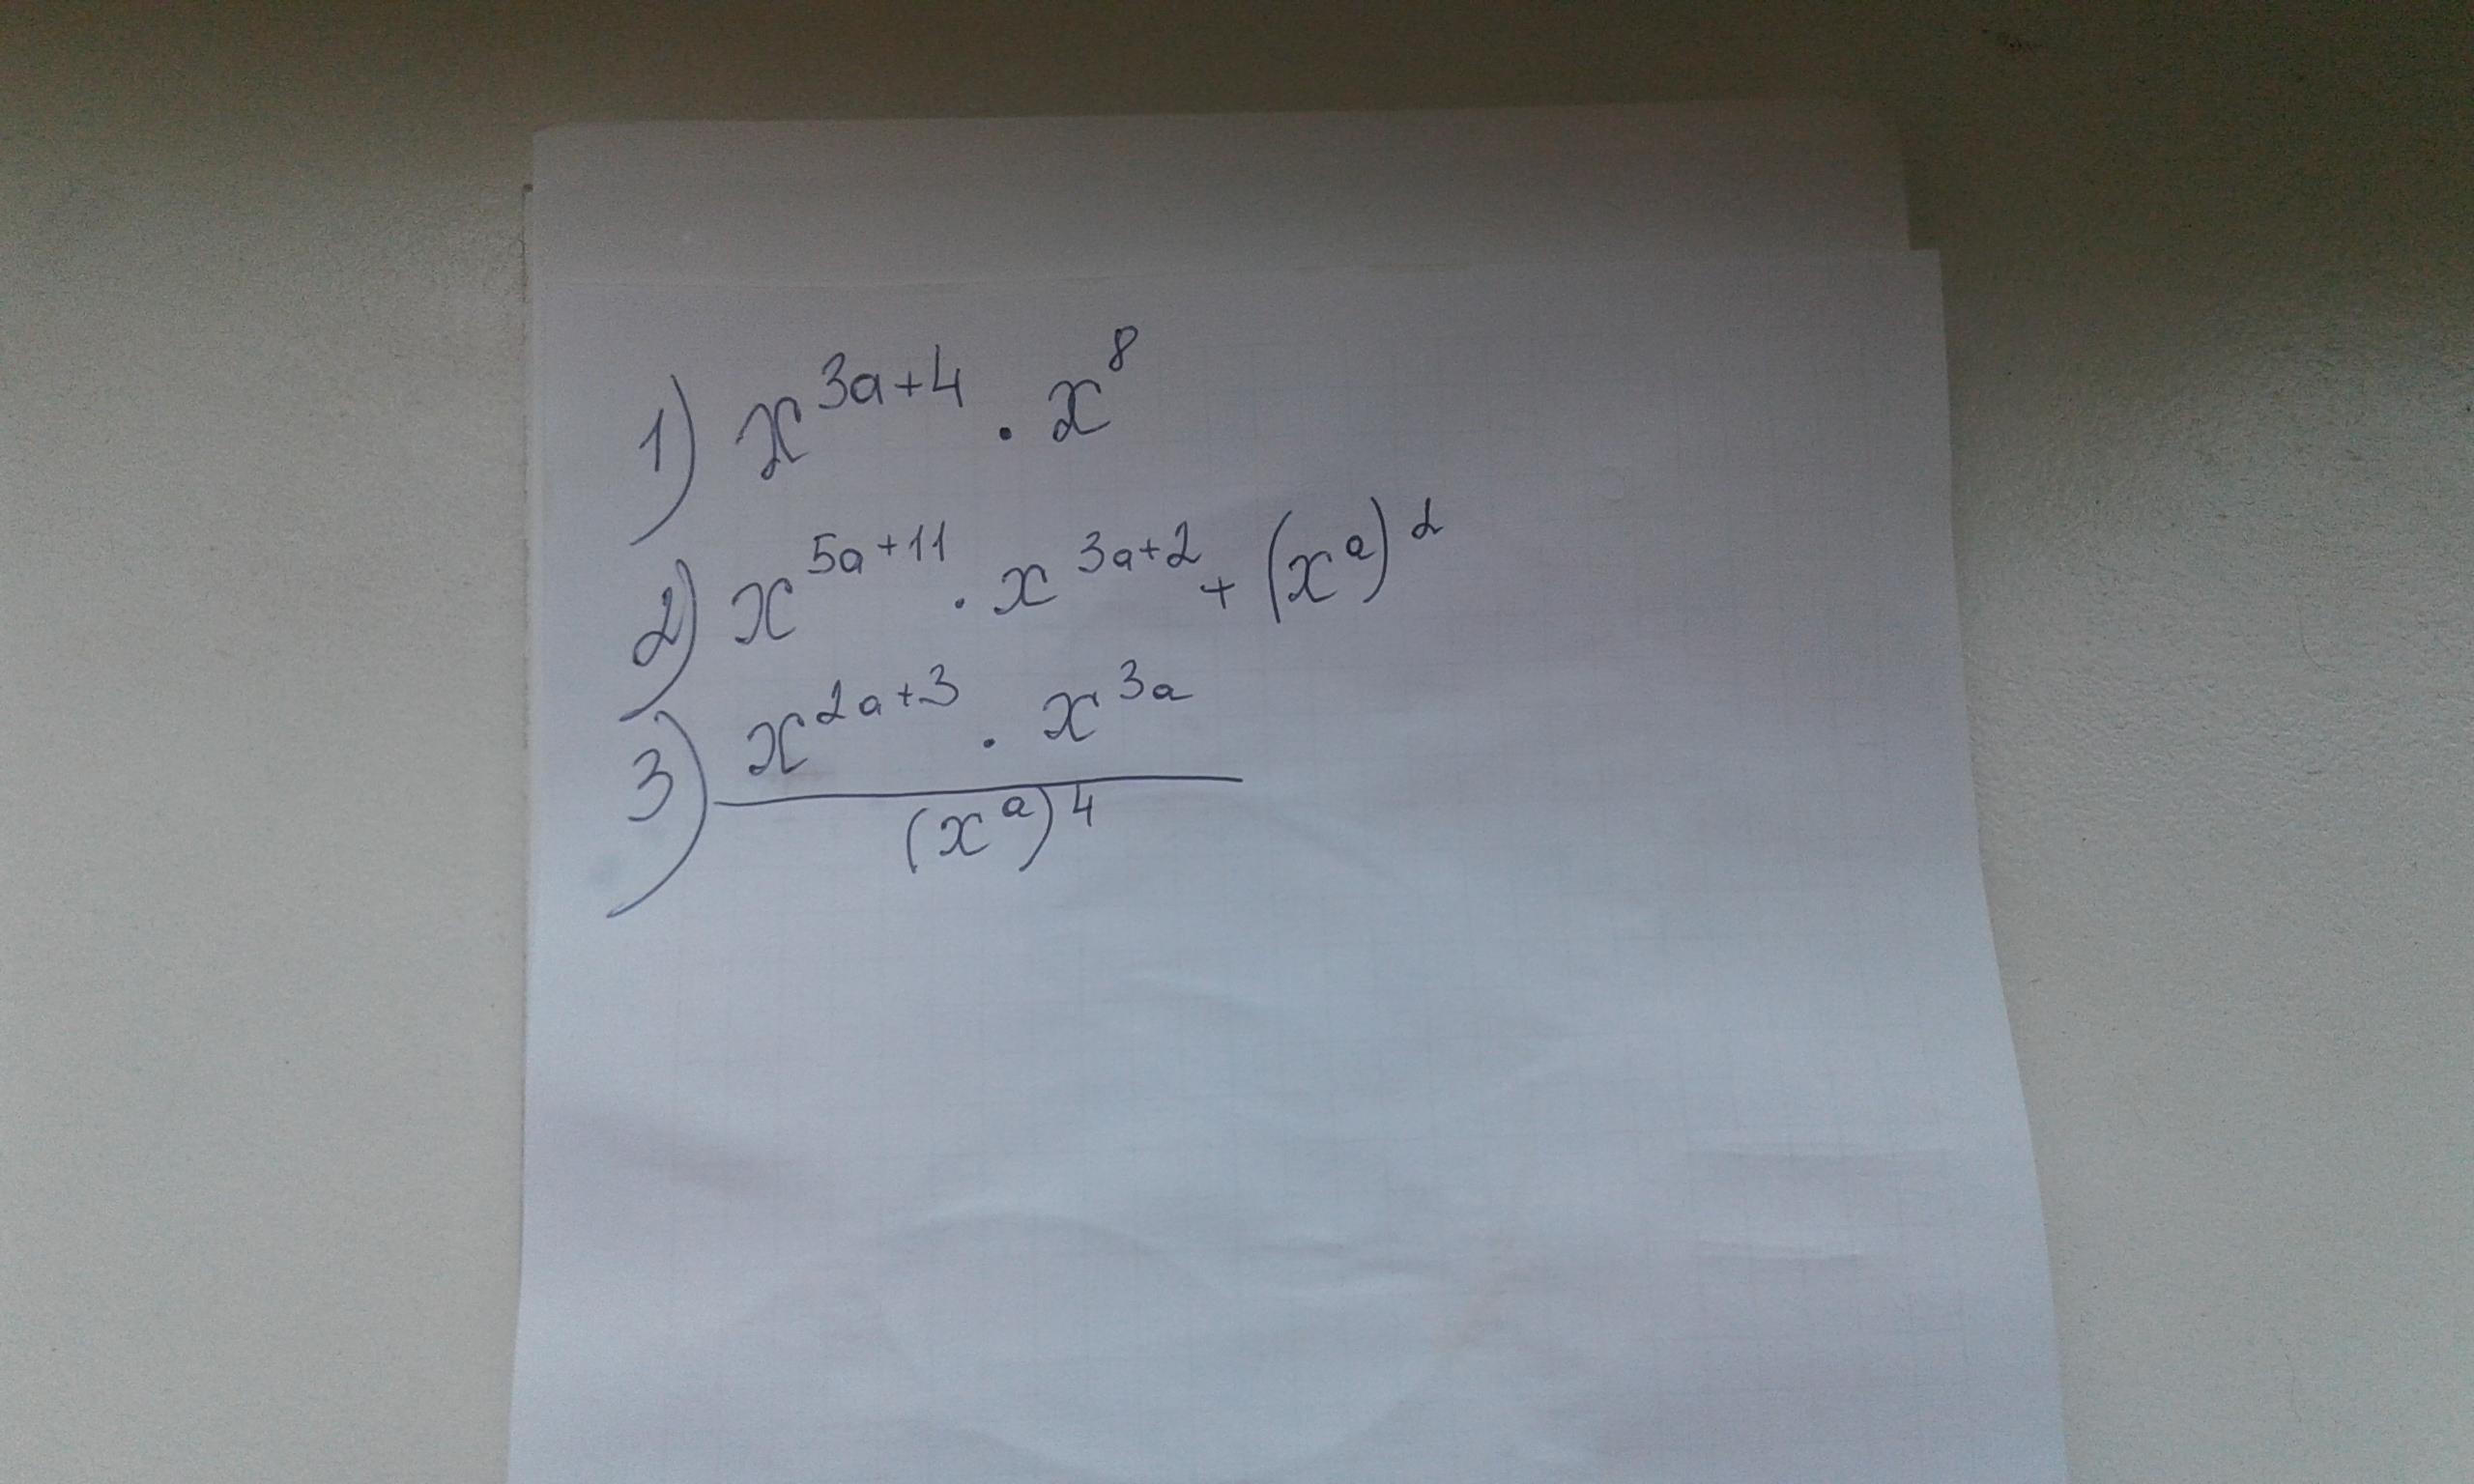 1) x^{3a+4} · x^8
2) x^{5a+11} · x^{3a+2} + (x^a)^2
3) \frac{x^{2a+3} · x^{3a}}{(x^a)^4}